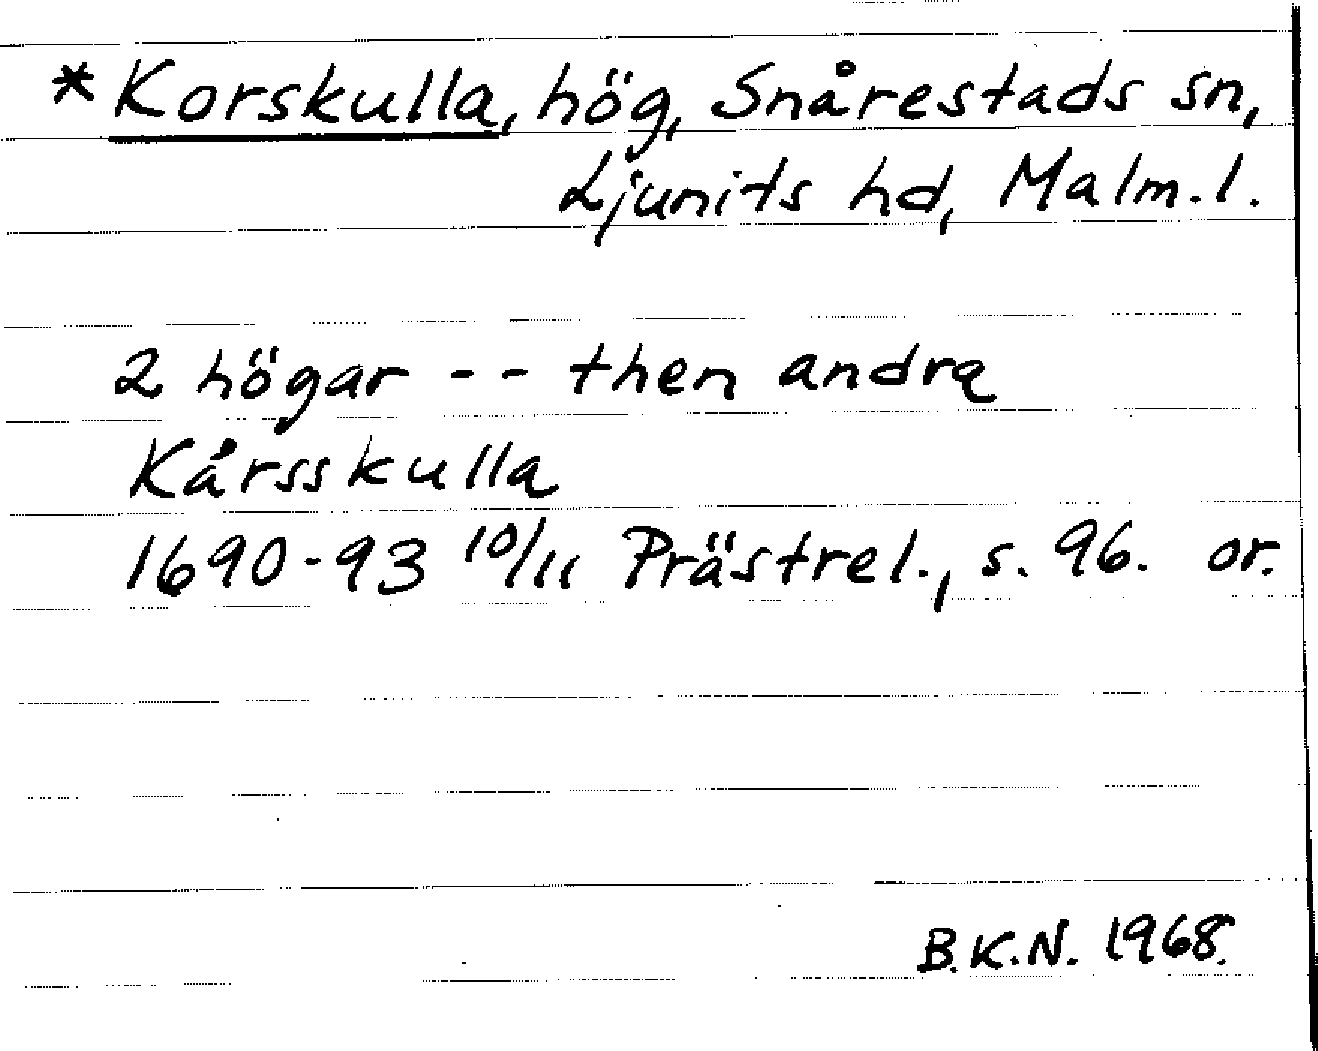 * Korskulla, hög, Snårestads sn,
Ljunits hd, Malm.l.
2 högar -- then andra
Kårsskulla
1690-93 10/11 Prästrel., s. 96. or.
B.K.N. 1968.